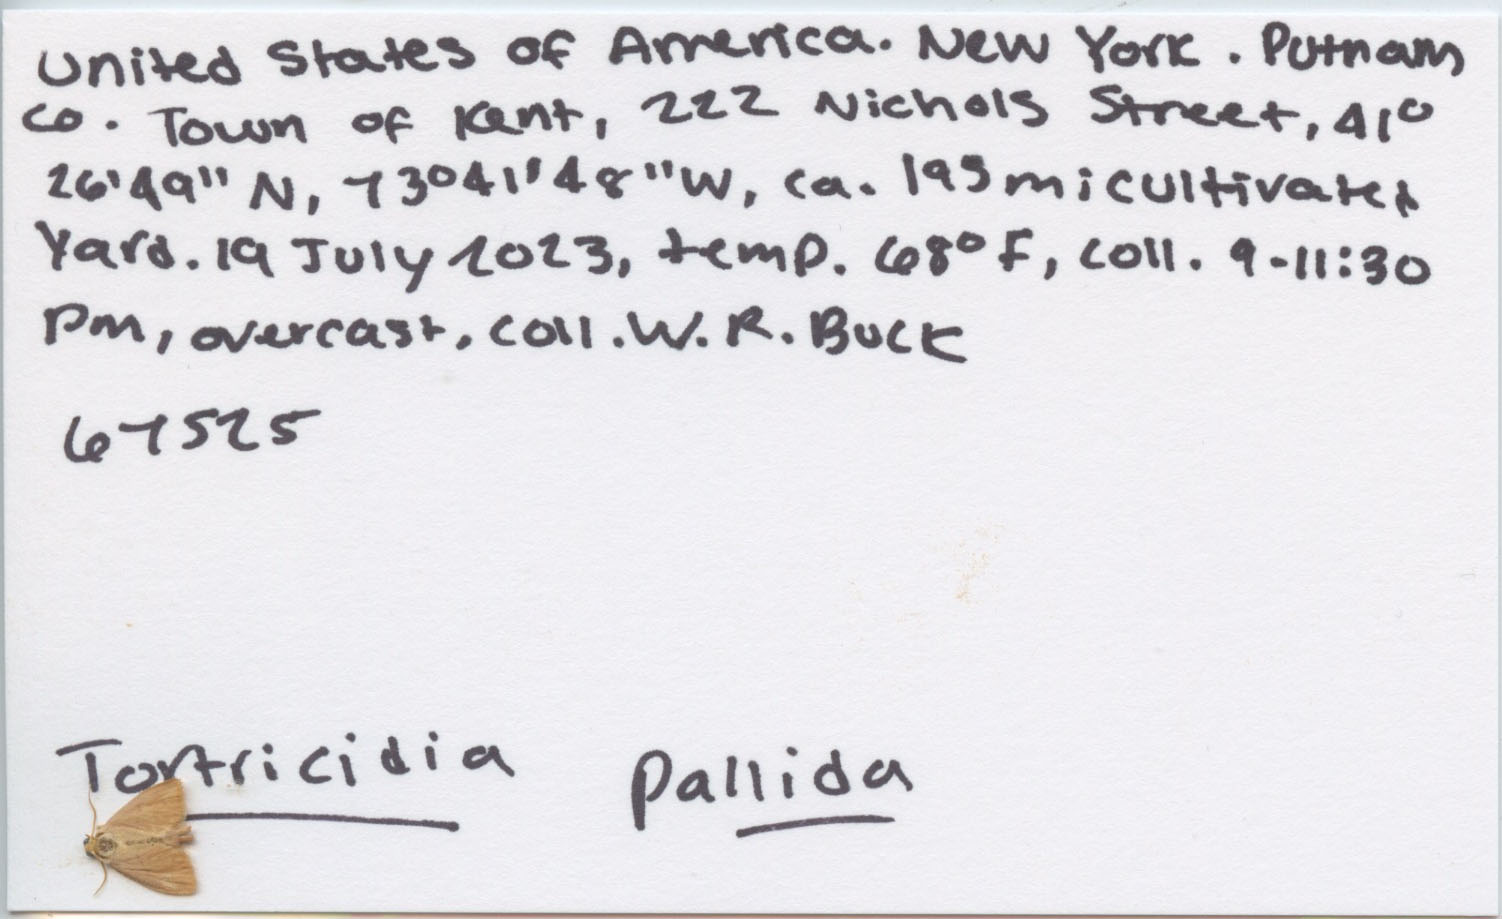 United States of America. New York. Putnam
Co. Town of Kent, 222 Nichols Street, 41°
26'49" N, 73°41'48"W, ca. 195m; cultivated
Yard. 19 July 2023, temp. 68°F, coll. 9-11:30
pm, overcast, coll. W. R. Buck
67525
Tortricidia pallida